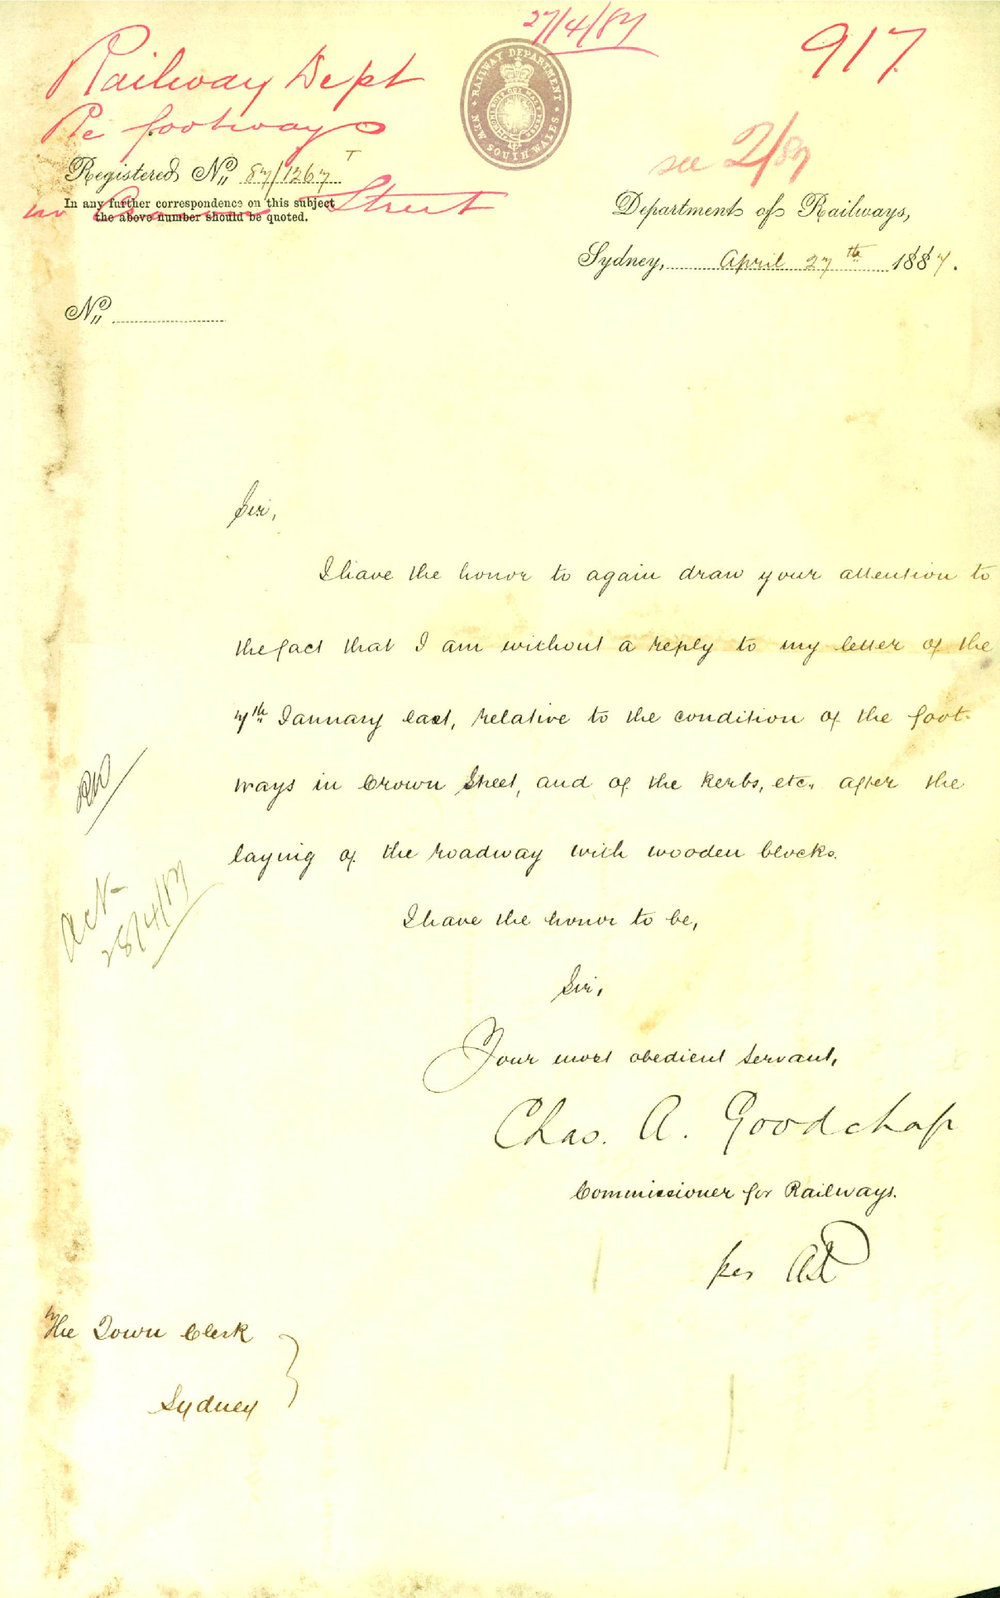 27/4/87
917
Railway Dept
Re footways
in Crown Street
see 2/87
RAILWAY DEPARTMENT
NEW SOUTH WALES
Registered No. 87/1267 T
In any further correspondence on this subject
the above number should be quoted.
Department of Railways,
Sydney, April 27th 1887.
No.
Sir,
I have the honor to again draw your attention to
the fact that I am without a reply to my letter of the
7th January last, relative to the condition of the foot-
ways in Crown Street, and of the kerbs, etc. after the
laying of the roadway with wooden blocks.
Ack
28/4/87
I have the honor to be,
Sir,
Your most obedient servant,
Chas. A. Goodchap
Commissioner for Railways.
per
The Town Clerk
Sydney